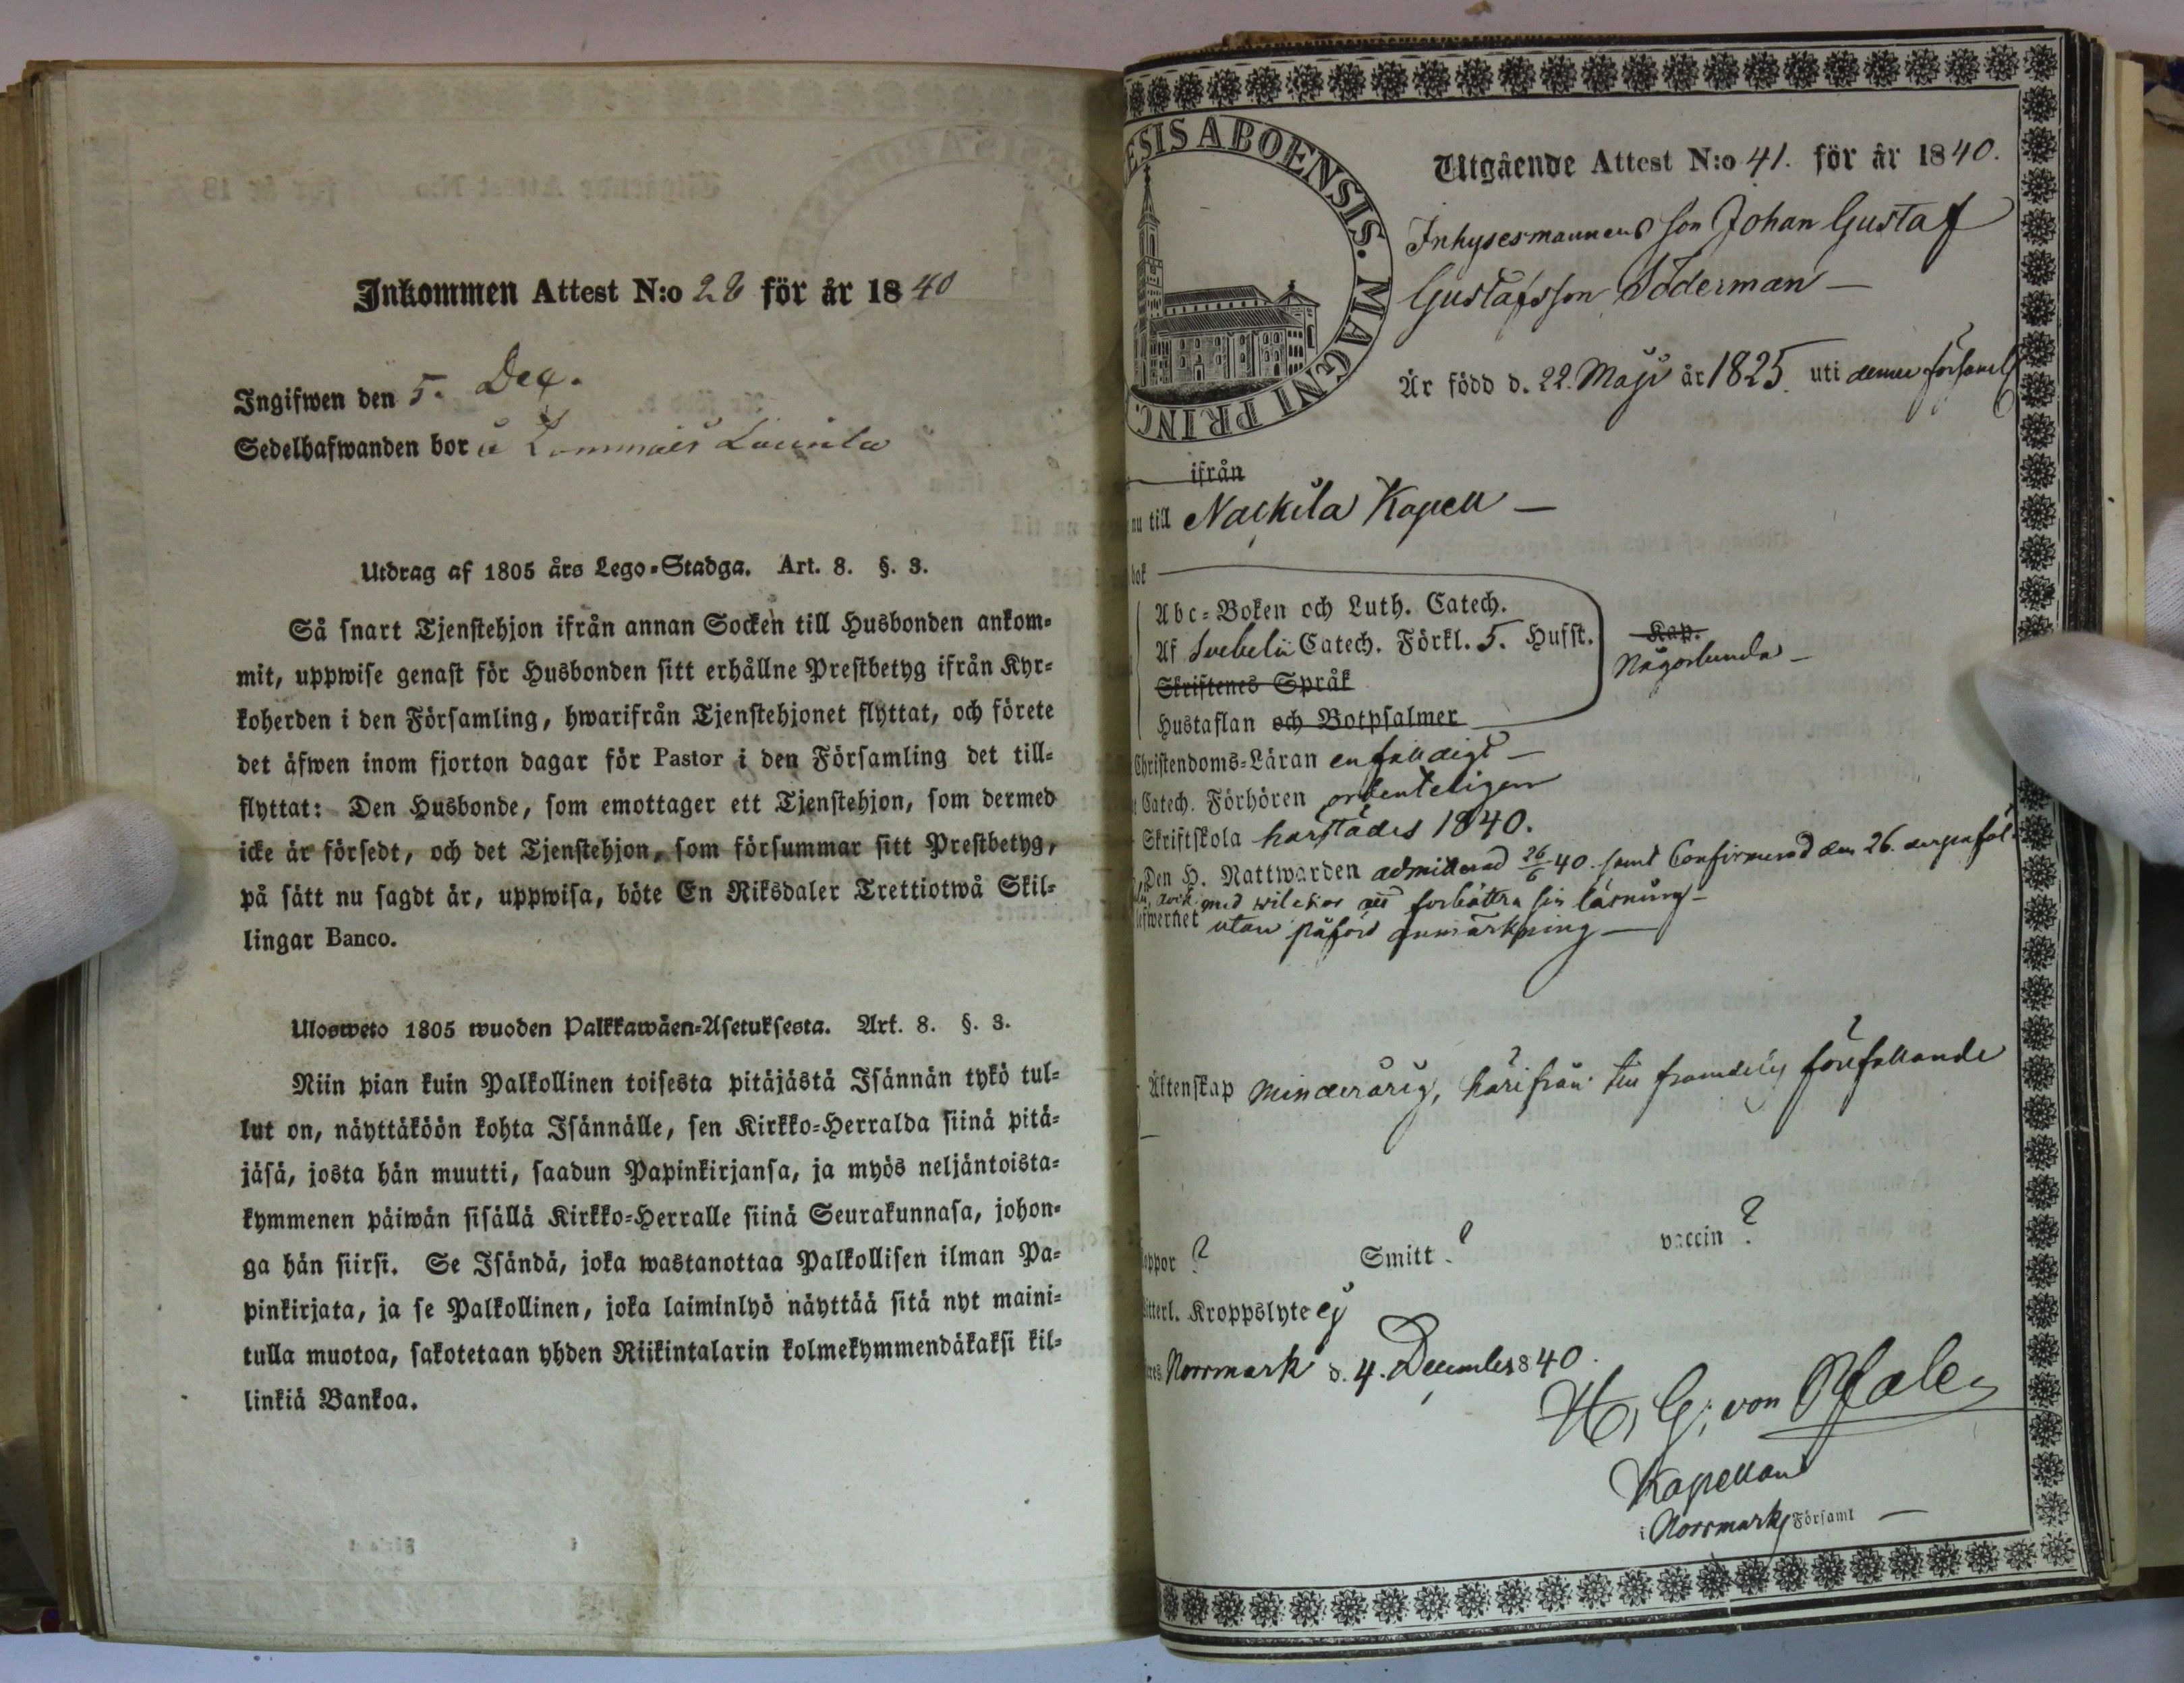 Inkommen Attest N:o 28 för år 1840
Ingifwen den 5. Dec.
Sedelhafwanden bor å
Utdrag af 1805 års Lego-Stadga. Art. 8. §. 3.
Så snart Tjenstehjon ifrån annan Socken till Husbonden ankom-
mit, uppwise genast för Husbonden sitt erhållne Prestbetyg ifrån Kyr-
koherden i den Församling, hwarifrån Tjenstehjonet flyttat, och förete
det äfwen inom fjorton dagar för Pastor i den Församling det till-
flyttat: Den Husbonde, som emottager ett Tjenstehjon, som dermed
icke är försedt, och det Tjenstehjon, som försummar sitt Prestbetyg,
på sätt nu sagdt är, uppwisa, böte En Riksdaler Trettiotwå Skil-
lingar Banco.
Ulosweto 1805 wuoden Palkkawäen-Asetuksesta. Art. 8. §. 3.
Niin pian kuin Palkollinen toisesta pitäjästä Isännän tykö tul-
lut on, näyttäköön kohta Isännälle, sen Kirkko-Herralda siinä pitä-
jäsä, josta hän muutti, saadun Papinkirjansa, ja myös neljäntoista-
kymmenen päiwän sisällä Kirkko-Herralle siinä Seurakunnasa, johon-
ga hän siirsi. Se Isändä, joka wastanottaa Palkollisen ilman Pa-
pinkirjata, ja se Palkollinen, joka laiminlyö näyttää sitä nyt maini-
tulla muotoa, sakotetaan yhden Riikintalarin kolmekymmendäkaksi kil-
linkiä Bankoa.
ESIS ABOENSIS. MAGNI PRINC
Utgående Attest N:o 41. för år 1840.
Inhysesmannens son Johan Gustaf
Gustafsson Söderman —
Är född d. 22. Maji år 1825 uti denna församl
ifrån
nu till Nackila Kapell —
bok
Abc-Boken och Luth. Catech.
Af Svebelii Catech. Förkl. 5. Hufst.
Kap.
Någorlunda —
Skriftenes Språk
Hustaflan och Botpsalmer
Christendoms-Läran enfaldigt —
Catech. Förhören ordenteligen
Skriftskola härstädes 1840.
Den H. Nattwarden admitterad 26/6 40. samt Confirmerad den 26. dernäsföl
dock med wilckor att förbättra sin läsning —
efwernet utan påförd anmärkning —
Äktenskap minderårig, härifrån till framdeles förefallande
—
oppor ? Smitt. ? vaccin ?
itterl. Kroppslyte ej
res Norrmark d. 4. December 1840.
H. G. von Pfaler
Kapellan
i Norrmark Församl —